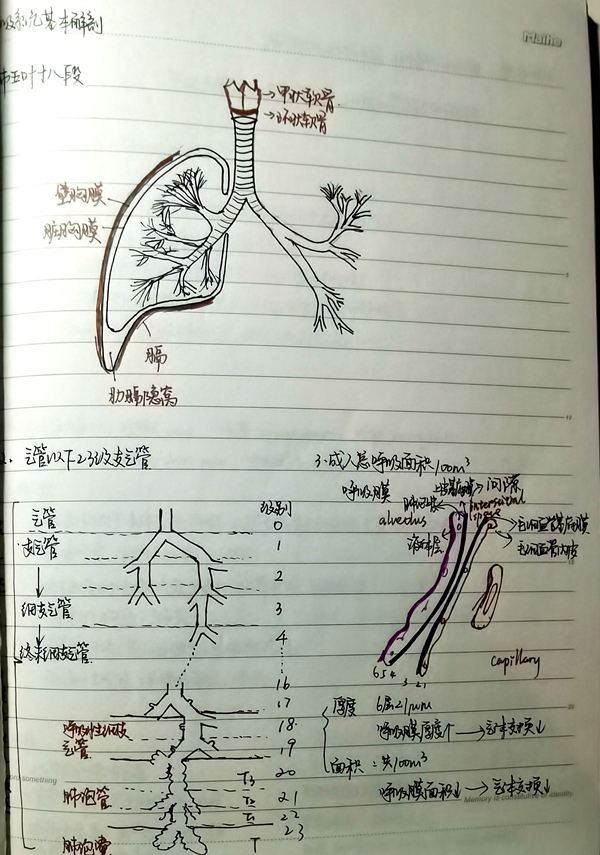 吸系统基本解剖
Maihe
肺五叶十八段
甲状软骨
环状软骨
壁胸膜
脏胸膜
膈
肋膈隐窝
2. 气管以下23级支气管
3.成人总呼吸面积100m³
呼吸膜
上皮基底膜
间隙
interstitial space
alveolus
毛细血管基底膜
毛细血管内皮
气管
级别
0
支气管
1
2
细支气管
3
4
终末细支气管
16
17
18
呼吸性细支气管
19
20
T3
肺泡管
21
T2
22
T1
23
肺泡囊
T
6 5 4 3 2 1
capillary
厚度 6层<1μm
呼吸膜厚度↑ → 气体交换↓
面积:共100m³
呼吸膜面积↓ → 气体交换↓
something
Memory is
identity